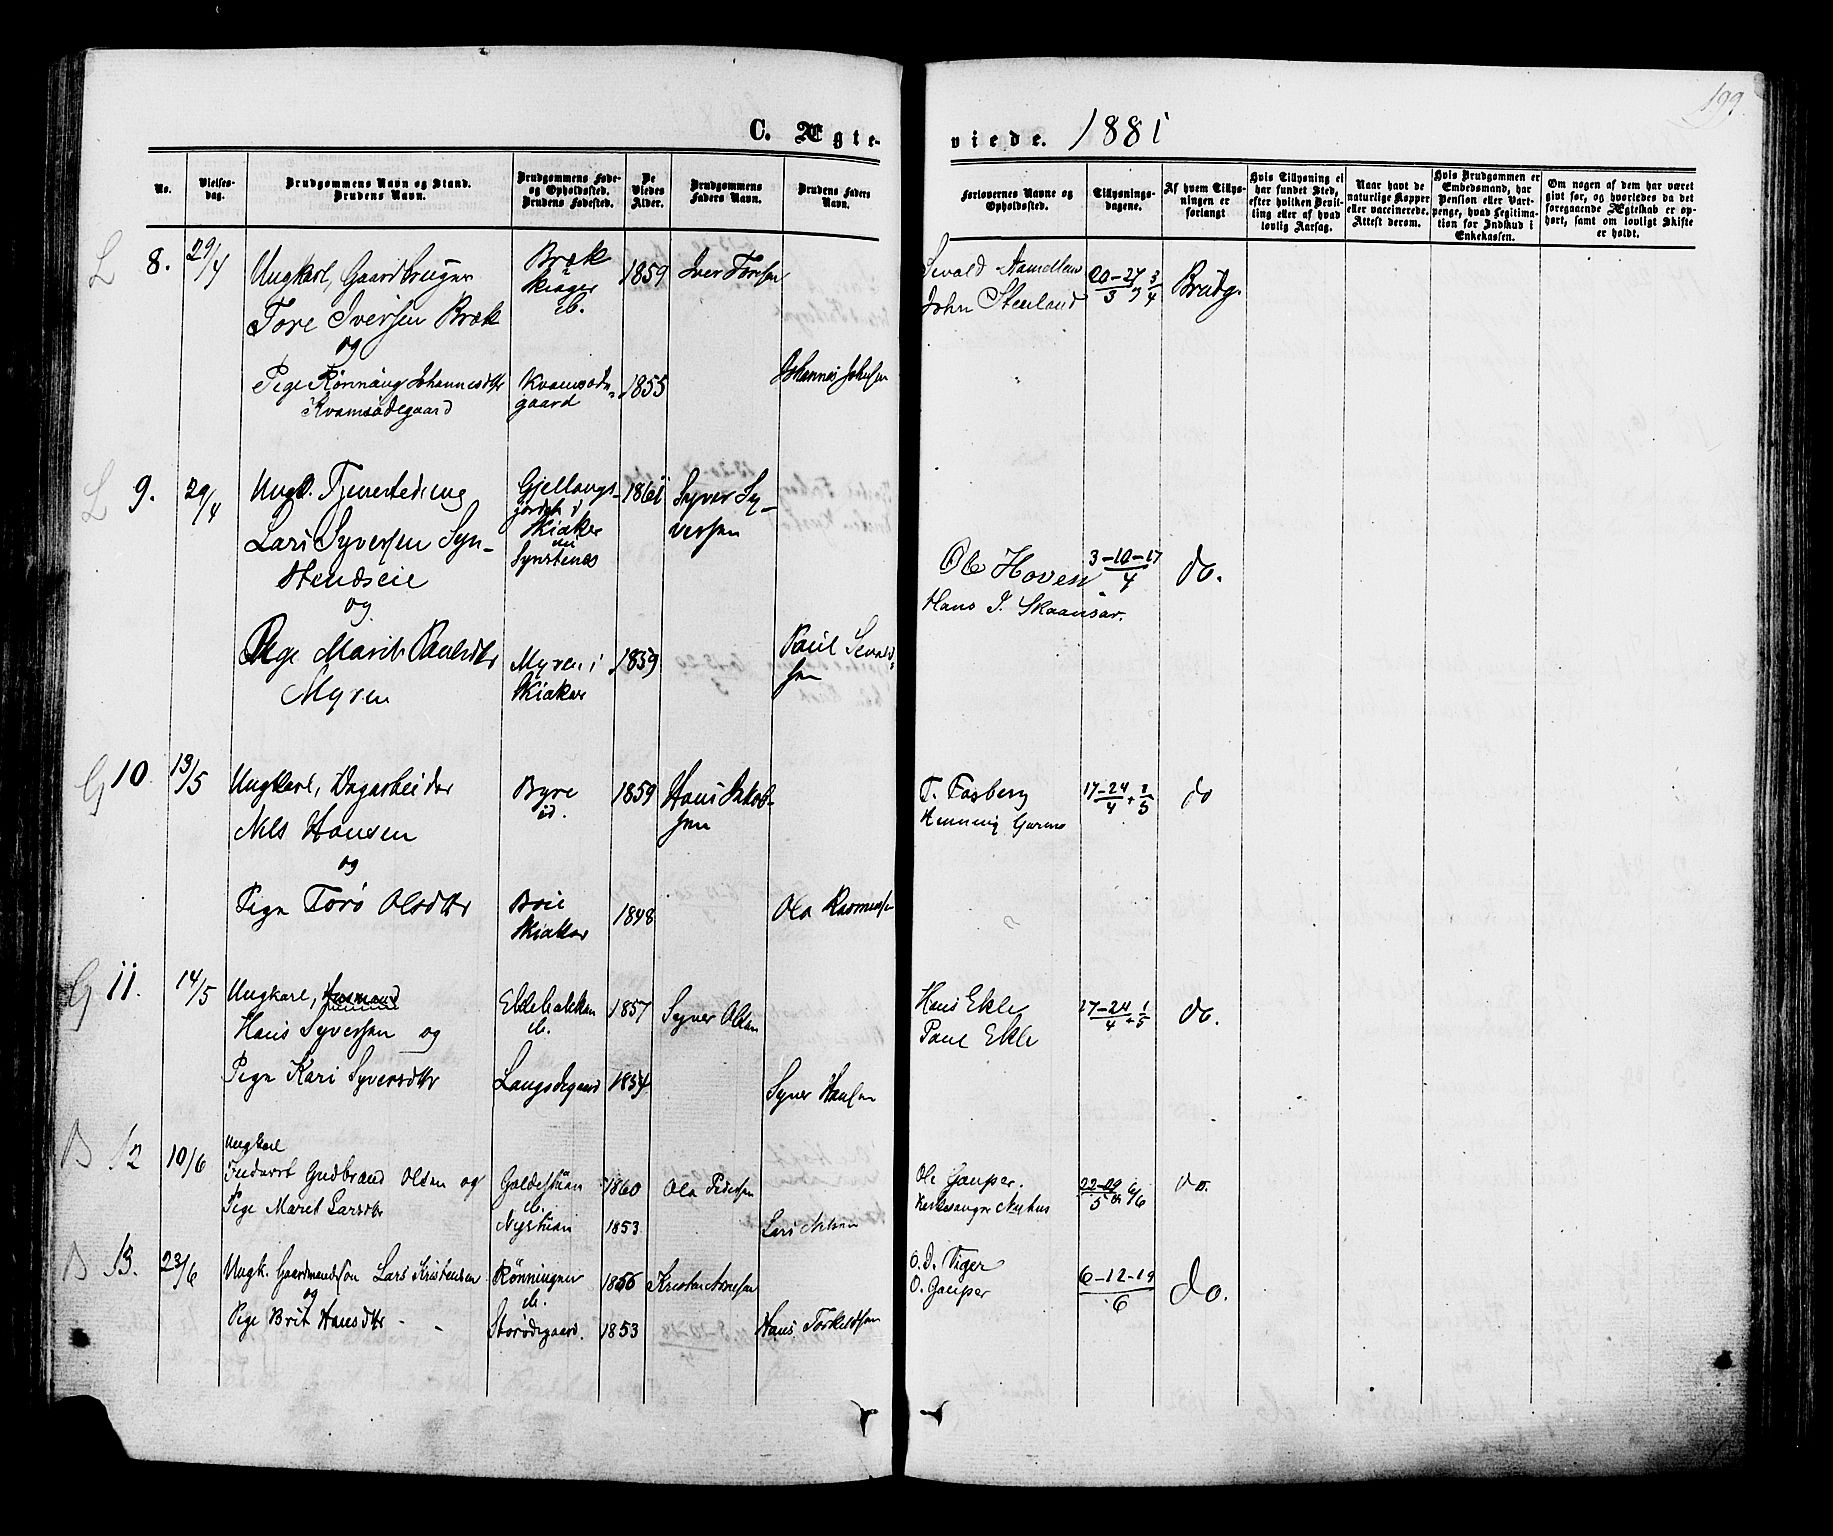 199.
C. Ægte-
viede. 1881
No.
Vielses-
dag.
Brudgommens Navn og Stand.
Brudens Navn.
Brudgommens Føde-
og Opholdssted.
Brudens Fødested.
De
Viedes
Alder.
Brudgommens
Faders Navn.
Brudens Faders
Navn.
Forlovernes Navne og
Opholdssted.
Tillysnings-
dagene.
Af hvem Tillys-
ningen er
forlangt
Hvis Tillysning ei
har fundet Sted,
efter hvilken Bevil-
ling eller af hvad
lovlig Aarsag.
Naar havt de
naturlige Kopper
eller vaccinerede.
Attest derom.
Hvis Brudgommen er
Embedsmand, har
Pension eller Vart-
penge, hvad Legitima-
tion for Indskud i
Enkekassen.
Om nogen af dem har været
givt før, og hvorledes da det
foregaaende Ægteskab er op-
hørt, samt om lovligt Skifte
er holdt.
L 8. 29/4 Ungkarl, Gaardbruger
Tore Iversen Bræk
og
Pige Rønnaug Johannesdtr
Kvamsødegaard
Bræk
Skiager
ib.
Kvamsøde-
gaard
1859
1855
Iver Toresen
Johannes Johnsen
Sevald
John Steinland
20-27/3, 3/4
Brudg.
L 9. 29/4 Ungk. Tjenestedreng
Lars Syversen Syn-
stendseie
og
Pige Marit Paulsdtr
Myren
Gjellangs-
jordet i
Skiaker
nu
Synstenes
Myren i
Skiaker
1861
1859
Syver Sy-
versen
Paul Sevald-
sen
Ole Hoven
Hans J. Skaansar.
3-10-17/4
do.
G 10. 13/5 Ungkarl, Dagarbeider
Nels Hansen
og
Pige Torø Olsdtr
Byre
id.
Skiaker
1859
1848
Hans Jakob-
sen
Ola Rasmussen
T. Fosberg
Henning
17-24/4 + 1/5
do
G 11. 14/5 Ungkarl, Husmand
Hans Syversen og
Pige Kari Syversdtr
Eklebakken
ib.
Langødegaard
1857
1854
Syver Olsen
Syver Hansen
Hans Ekle
Paul Ekle
17-24/4 + 1/5
do.
B 12 10/6 Ungkarl
Inderst Gudbrand Olsen og
Pige Maret Larsdtr
Galdestuen
ib.
Nystuen
1860
1853
Ola Pedersen
Lars Nelsen
Ole Gauper.
Kirkesanger Nyhus
22-29/5 og 6/6
do.
B 13. 23/6 Ungk. Gaardmandssøn Lars Kristensen
og
Pige Brit Hansdtr
Rønningen
ib.
Storødegaard.
1856
1853
Hans Torkildsen
O. D. Viger
O. Gauper
6-12-19/6
do.